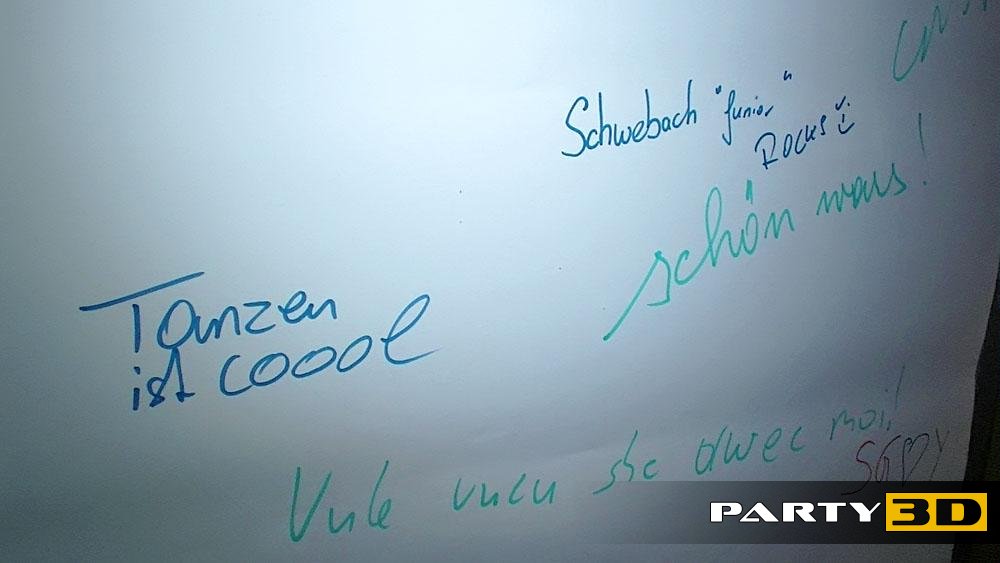 Schwebach "Junior"
Rocks
schön wars!
Tanzen
ist coool
Vule vucu
moi!
PARTY 3D